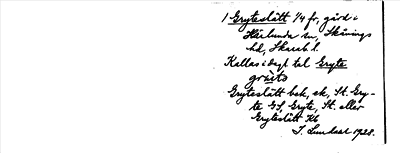 1 Gryteslätt 1/4 fr, gård i
Härlunda sn, Skånings
hd, Skarab. l.
Kallas i dagl. tal Gryte
Gryteslätt bek, ek, St. Gry-
te GS, Gryte, St. eller
Gryteslätt Kb
1928.